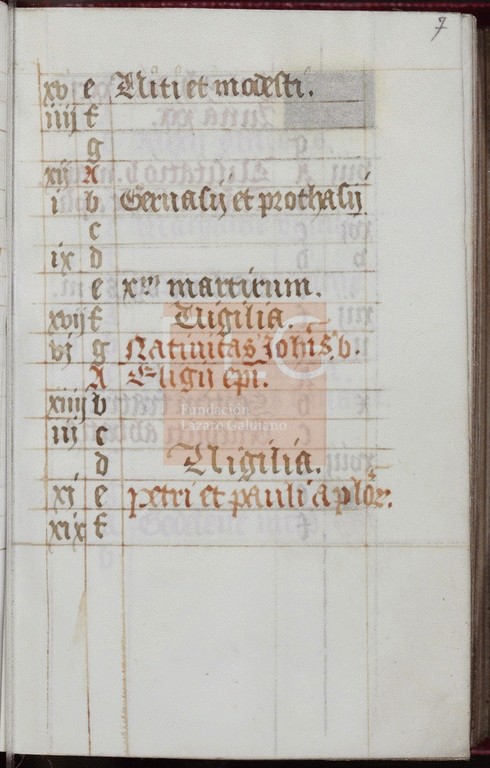 9
xv e Viti et modesti.
iiij f
g
xij A
i b Geruasij et prothasij
c
ix d
e xm martirum.
xvij f Uigilia.
vj g Natiuitas Johis b.
A Eligij epi.
xiiij b
iij c
d Uigilia.
xj e petri et pauli aplor.
xix f
Fundación
Lázaro Galdiano